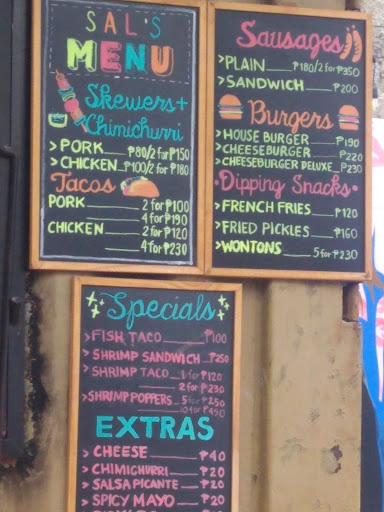 SAL'S
MENU
Skewers +
Chimichurri
> PORK ₱80/2 for ₱150
> CHICKEN ₱100/2 for ₱180
Tacos
PORK 2 for ₱100
4 for ₱190
CHICKEN 2 for ₱120
4 for ₱230
Sausages
> PLAIN ₱180/2 for ₱350
> SANDWICH ₱200
Burgers
> HOUSE BURGER ₱190
> CHEESEBURGER ₱220
> CHEESEBURGER DELUXE ₱230
• Dipping Snacks •
> FRENCH FRIES ₱120
> FRIED PICKLES ₱160
> WONTONS 5 for ₱230
Specials
> FISH TACO ₱100
> SHRIMP SANDWICH ₱250
> SHRIMP TACO 1 for ₱120
2 for ₱230
> SHRIMP POPPERS 5 for ₱250
10 for ₱450
EXTRAS
> CHEESE ₱40
> CHIMICHURRI ₱20
> SALSA PICANTE ₱20
> SPICY MAYO ₱20